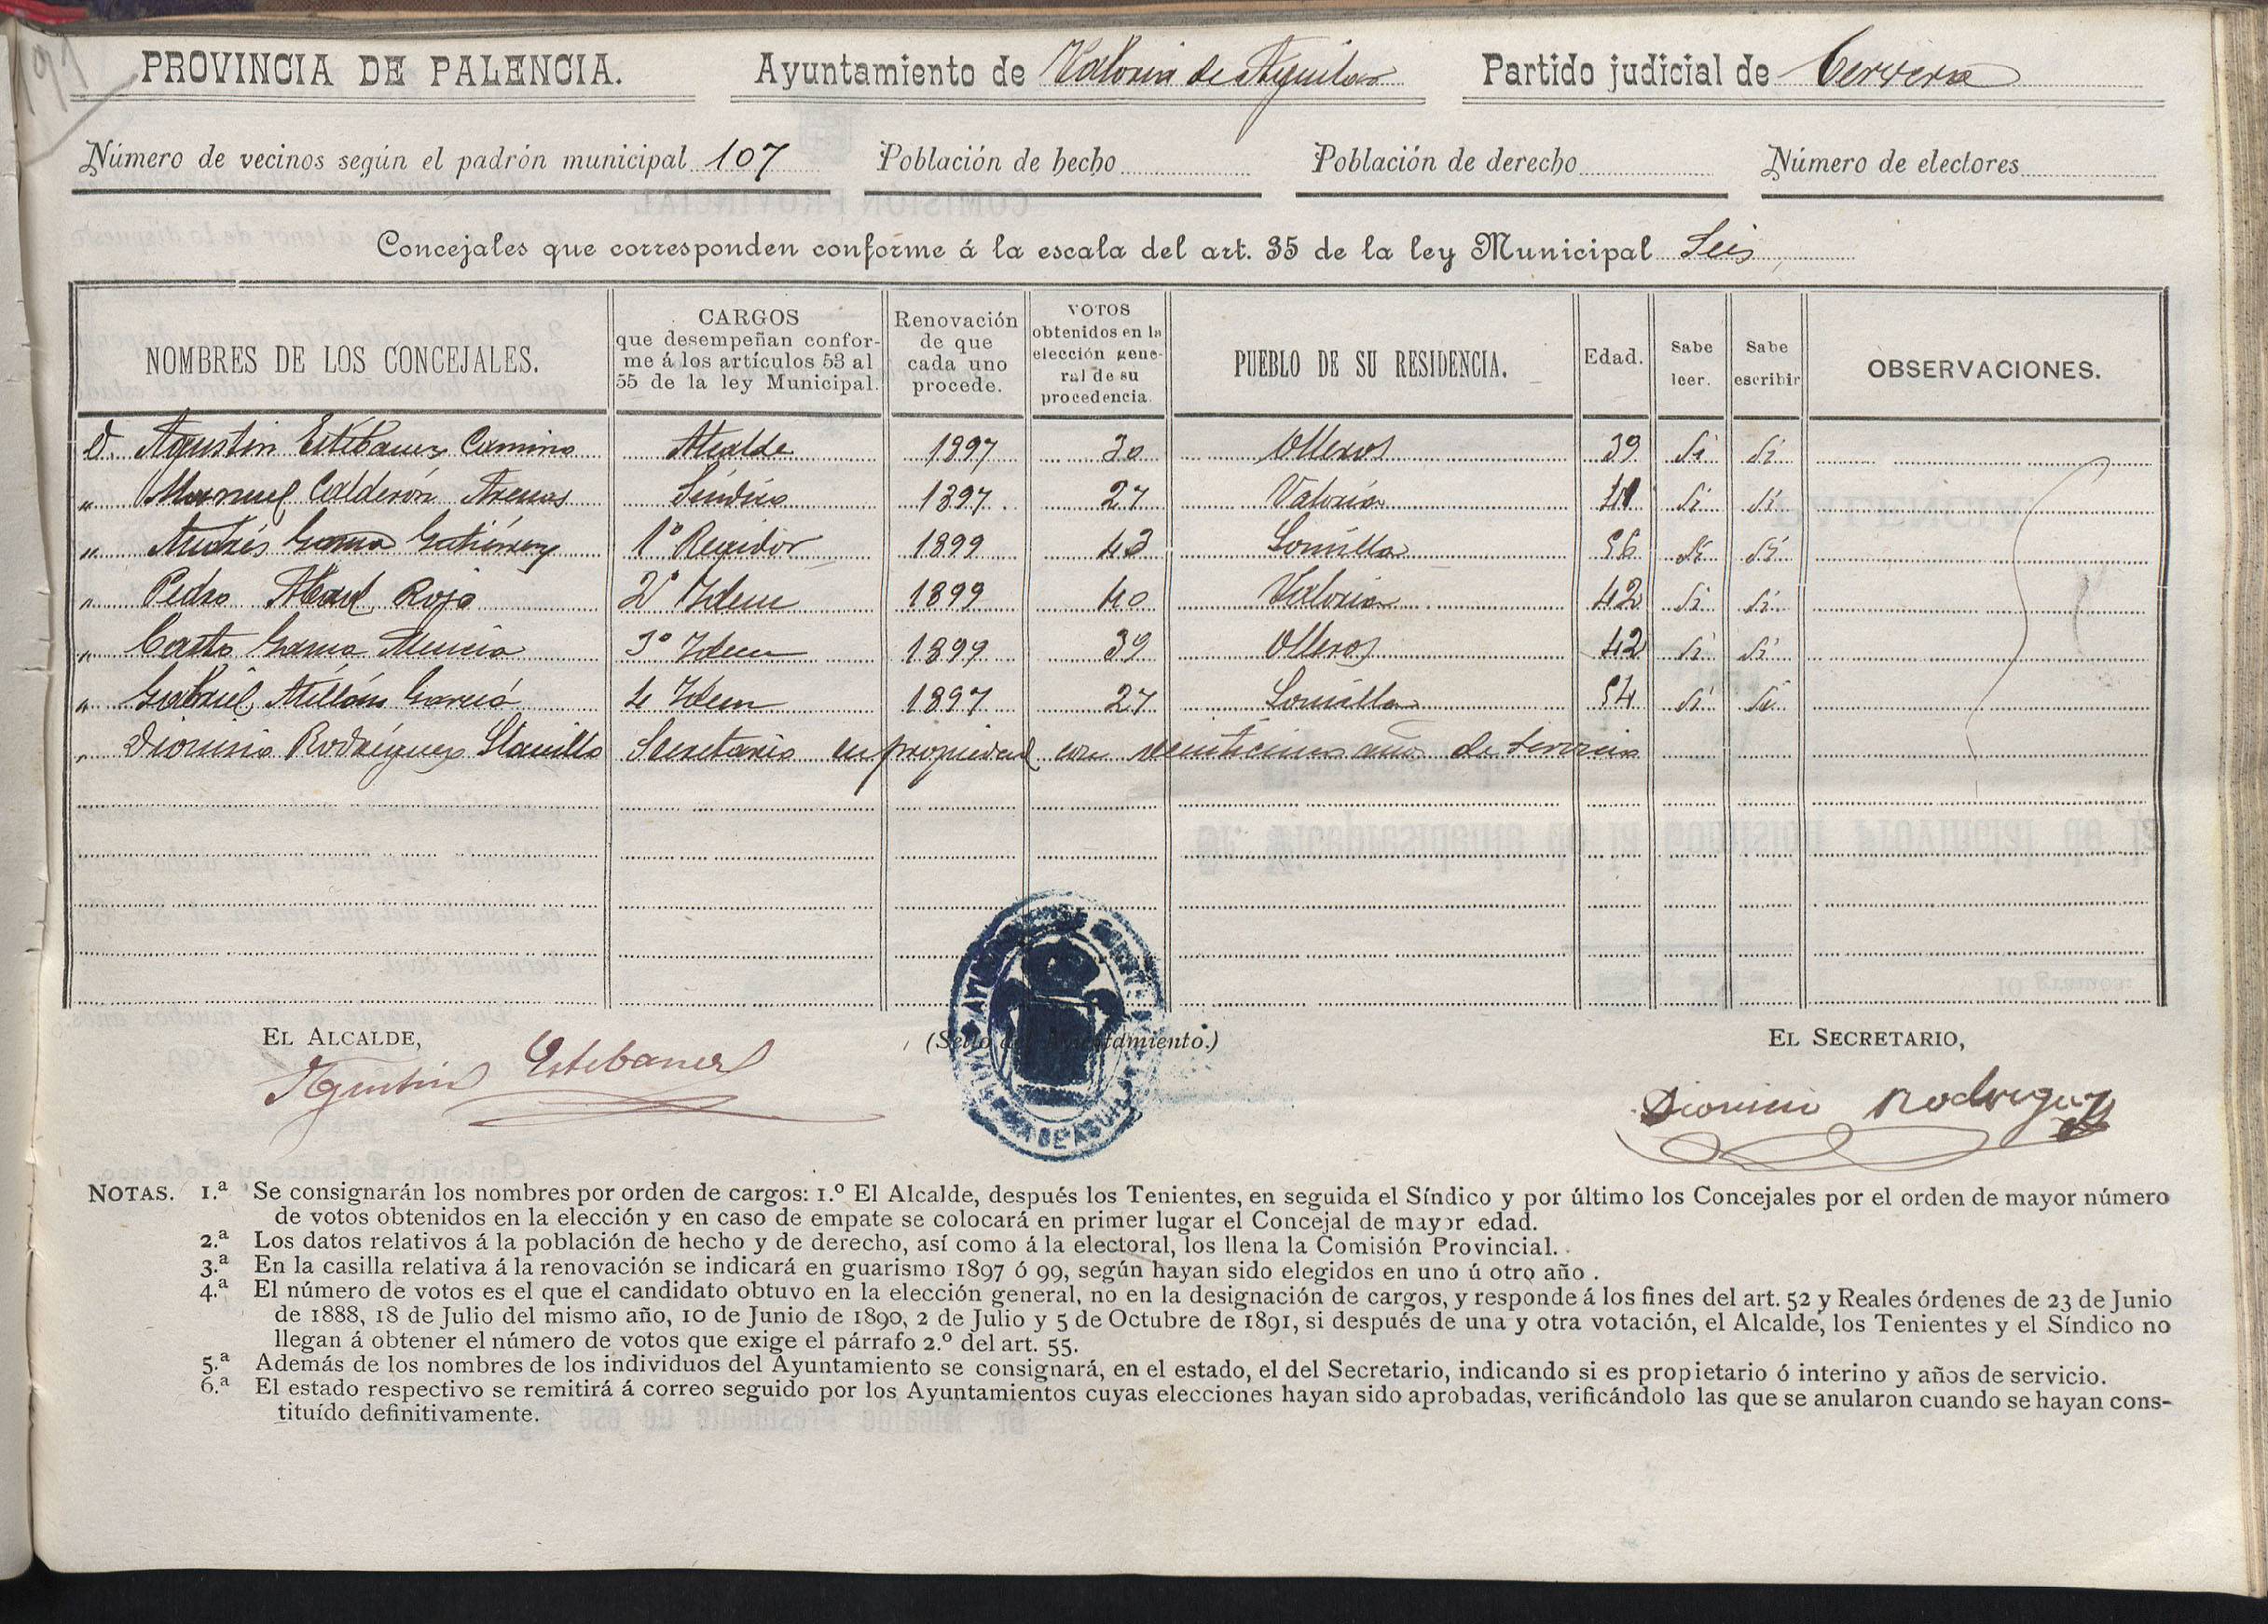 197
PROVINCIA DE PALENCIA. Ayuntamiento de Valoria de Aguilar Partido judicial de Cervera
Número de vecinos según el padrón municipal 107 Población de hecho Población de derecho Número de electores
Concejales que corresponden conforme á la escala del art. 35 de la ley Municipal Seis
NOMBRES DE LOS CONCEJALES. CARGOS que desempeñan conforme á los artículos 53 al 55 de la ley Municipal. Renovación de que cada uno procede. VOTOS obtenidos en la elección general de su procedencia. PUEBLO DE SU RESIDENCIA. Edad. Sabe leer. Sabe escribir OBSERVACIONES.
D. Agustin Estebanez Camino Alcalde 1897 30 Olleros 39 Si Si
„ Manuel Calderón Arenas Síndico 1897 27 Valoria 41 Si Si
„ Andrés García Gutiérrez 1º Regidor 1899 43 Lomilla 56 Si Si
„ Pedro Abad Rojo 2º Idem 1899 40 Valoria 42 Si Si
„ Casto García Mencia 3º Idem 1899 39 Olleros 42 Si Si
„ Gabriel Millán García 4 Idem 1897 27 Lomilla 54 Si Si
„ Dionisio Rodríguez Secretario en propiedad con veinticinco años de servicio
EL ALCALDE, (Sello del Ayuntamiento.) EL SECRETARIO,
Agustin Estebanez Dionisio Rodriguez
NOTAS. 1.ª Se consignarán los nombres por orden de cargos: 1.º El Alcalde, después los Tenientes, en seguida el Síndico y por último los Concejales por el orden de mayor número
de votos obtenidos en la elección y en caso de empate se colocará en primer lugar el Concejal de mayor edad.
2.ª Los datos relativos á la población de hecho y de derecho, así como á la electoral, los llena la Comisión Provincial.
3.ª En la casilla relativa á la renovación se indicará en guarismo 1897 ó 99, según hayan sido elegidos en uno ú otro año.
4.ª El número de votos es el que el candidato obtuvo en la elección general, no en la designación de cargos, y responde á los fines del art. 52 y Reales órdenes de 23 de Junio
de 1888, 18 de Julio del mismo año, 10 de Junio de 1890, 2 de Julio y 5 de Octubre de 1891, si después de una y otra votación, el Alcalde, los Tenientes y el Síndico no
llegan á obtener el número de votos que exige el párrafo 2.º del art. 55.
5.ª Además de los nombres de los individuos del Ayuntamiento se consignará, en el estado, el del Secretario, indicando si es propietario ó interino y años de servicio.
6.ª El estado respectivo se remitirá á correo seguido por los Ayuntamientos cuyas elecciones hayan sido aprobadas, verificándolo las que se anularon cuando se hayan cons-
tituído definitivamente.